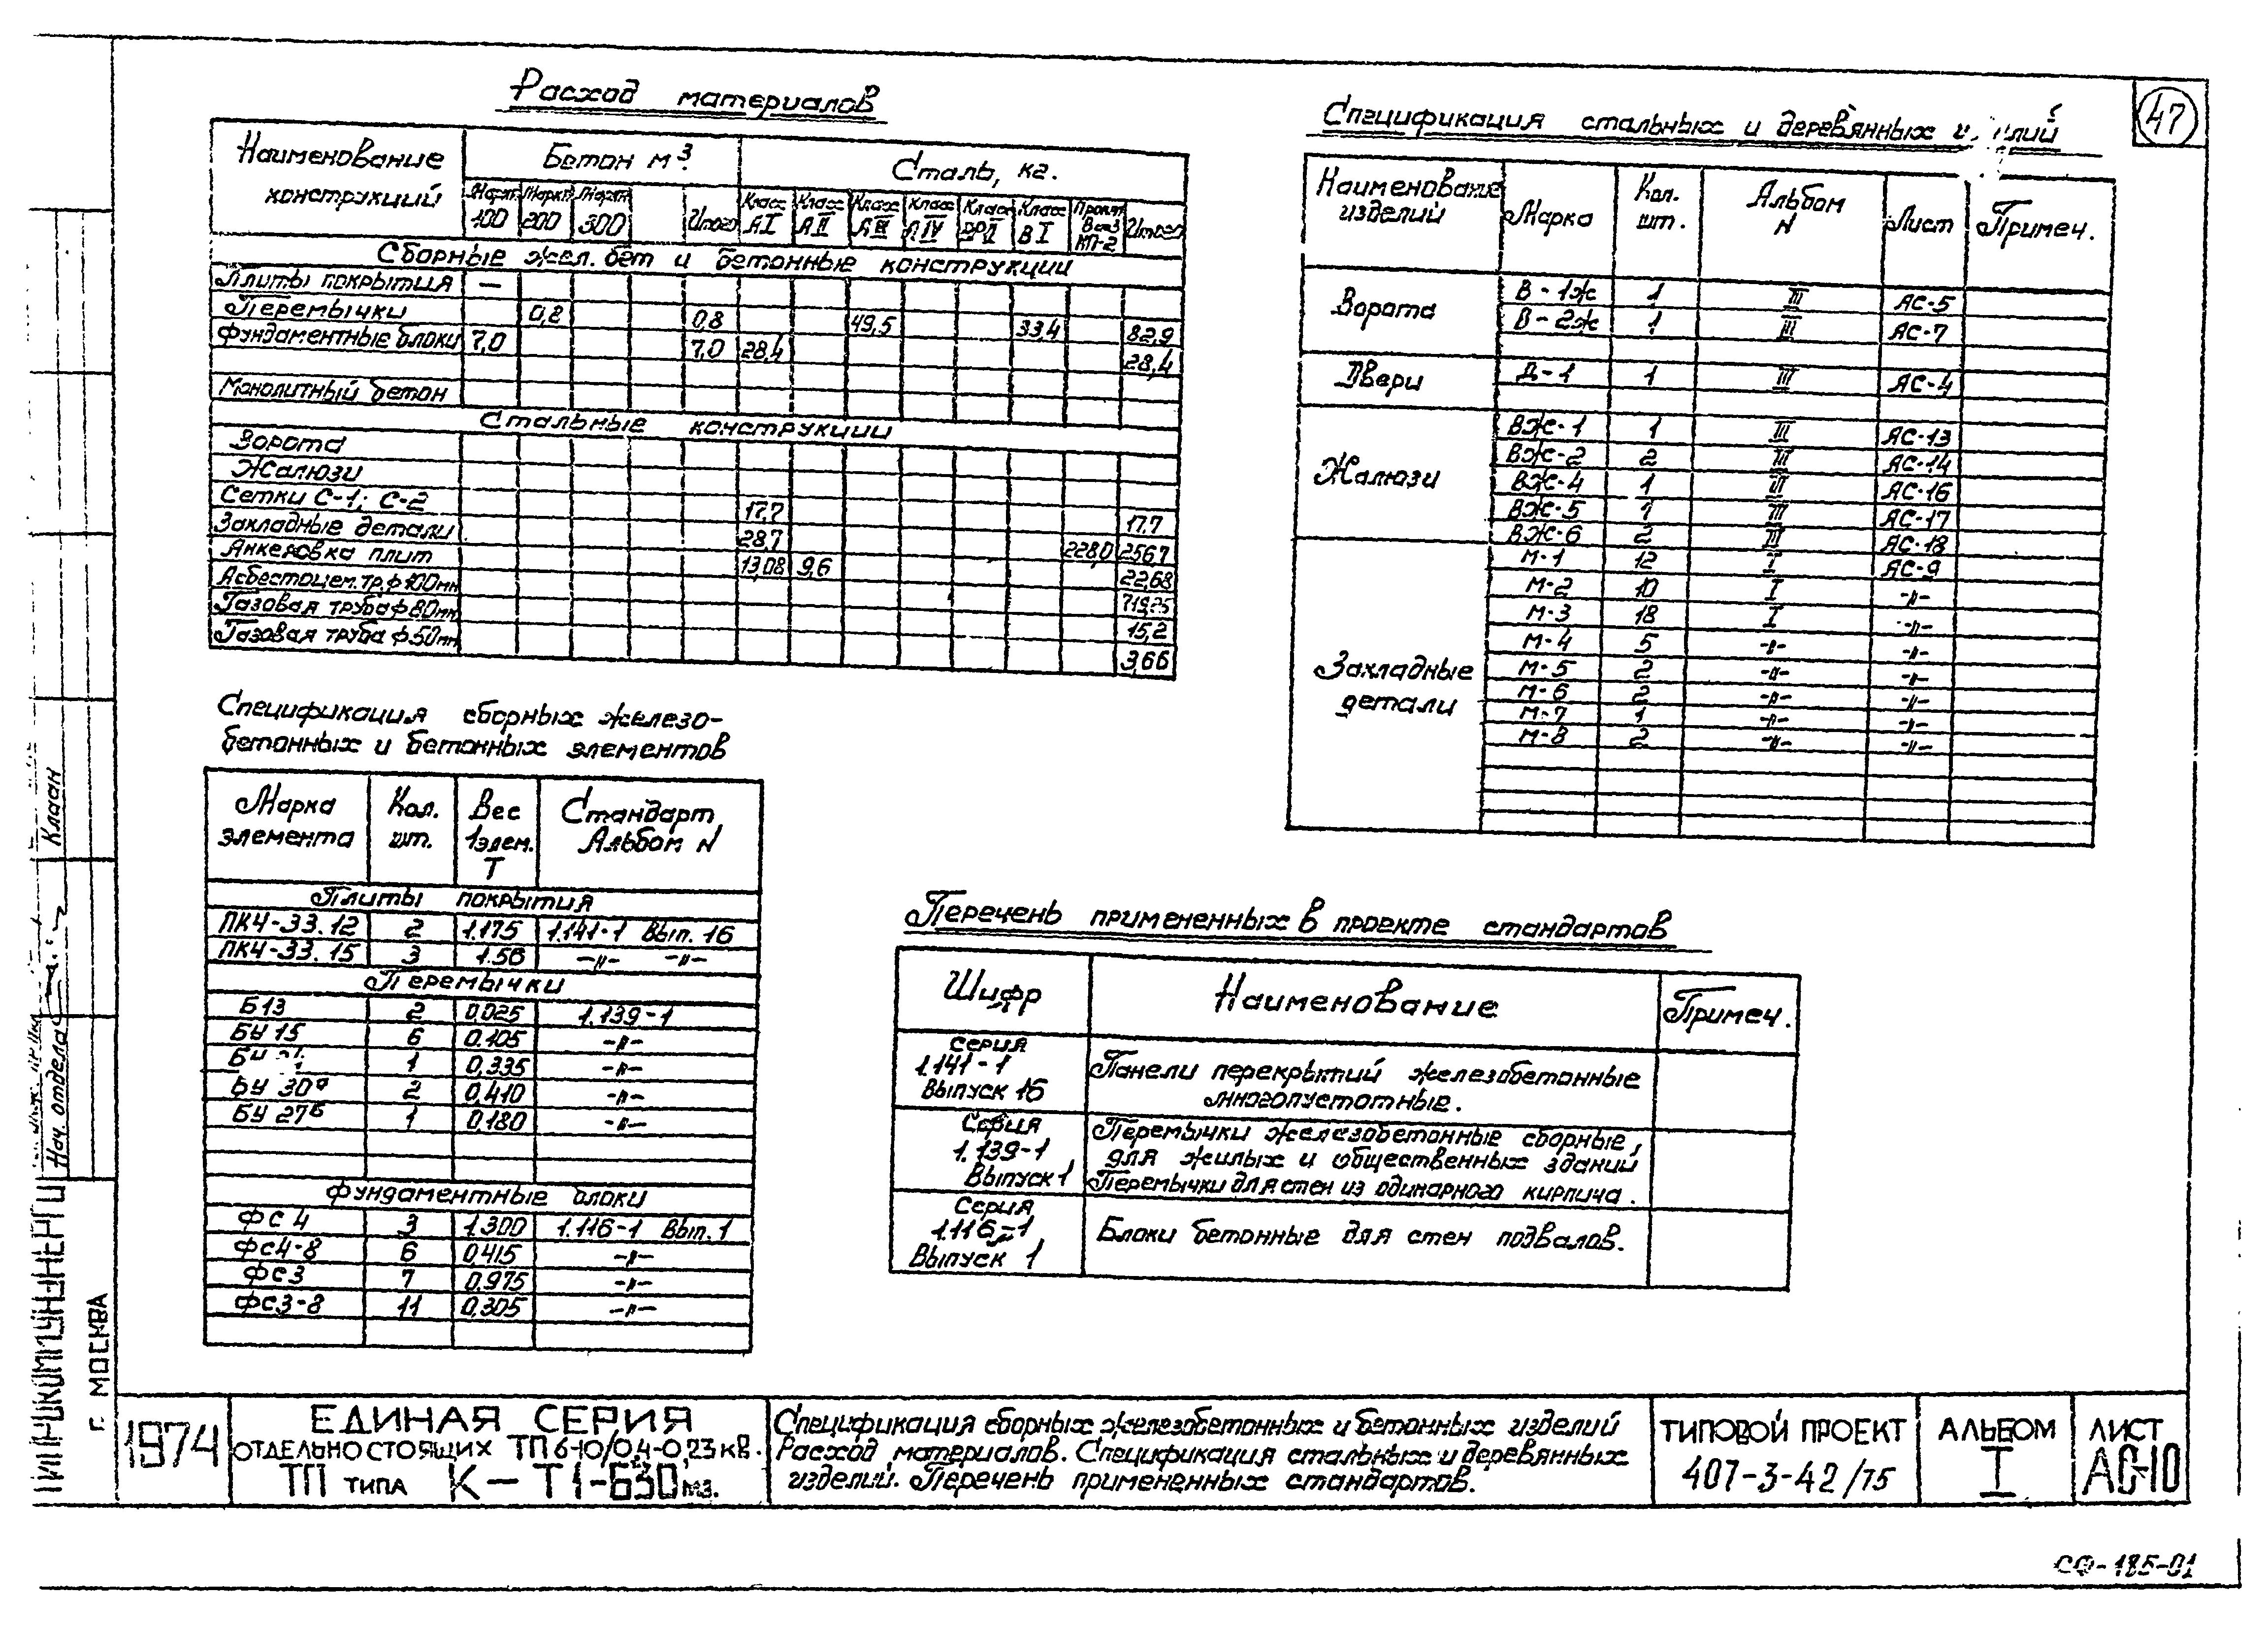 47
Расход материалов
Наименование конструкций Бетон м³ Сталь, кг.
Марка 100 Марка 200 Марка 300 Итого Класс АI Класс АII Класс АIII Класс АIV Класс Класс ВI Прокат Вст3 КП-2 Итого
Сборные жел.бет и бетонные конструкции
Плиты покрытия —
Перемычки 0,8 0,8 49,5 33,4 82,9
Фундаментные блоки 7,0 7,0 28,4 28,4
Монолитный бетон
Стальные конструкции
Ворота
Жалюзи
Сетки С-1; С-2 17,7 17,7
Закладные детали 28,7 228,0 256,7
Анкеровка плит 13,08 9,6 22,68
Асбестоцем.тр.ф100мм 719,25
Газовая труба ф80мм 15,2
Газовая труба ф50мм 3,66
Спецификация сборных железо-
бетонных и бетонных элементов
Марка элемента Кол. шт. Вес 1 элем. Т Стандарт Альбом N
Плиты покрытия
ПК4-33.12 2 1.175 1.141-1 Вып. 16
ПК4-33.15 3 1.56 -〃- -〃-
Перемычки
Б13 2 0.025 1.139-1
БУ 15 6 0.105 -〃-
1 0,335 -〃-
БУ 30ᵃ 2 0,410 -〃-
БУ 27ᵇ 1 0,180 -〃-
Фундаментные блоки
ФС4 3 1.300 1.116-1 Вып.1
ФС4-8 6 0.415 -〃-
ФС3 7 0.975 -〃-
ФС3-8 11 0,305 -〃-
Спецификация стальных и деревянных
Наименование изделий Марка Кол. шт. Альбом N Лист Примеч.
Ворота В-1ж 1 III АС-5
В-2ж 1 III АС-7
Двери Д-1 1 III АС-4
Жалюзи ВЖ-1 1 III АС-13
ВЖ-2 2 III АС-14
ВЖ-4 1 III АС-16
ВЖ-5 1 III АС-17
ВЖ-6 2 III АС-18
Закладные детали М-1 12 I АС-9
М-2 10 I -〃-
М-3 18 I -〃-
М-4 5 -〃- -〃-
М-5 2 -〃- -〃-
М-6 2 -〃- -〃-
М-7 1 -〃- -〃-
М-8 2 -〃- -〃-
Перечень примененных в проекте стандартов
Шифр Наименование Примеч.
Серия 1.141-1 Выпуск 16 Панели перекрытий железобетонные многопустотные.
Серия 1.139-1 Выпуск 1 Перемычки железобетонные сборные, для жилых и общественных зданий Перемычки для стен из одинарного кирпича.
Серия 1.116-1 Выпуск 1 Блоки бетонные для стен подвалов.
Нач. отдела Клаан
г. МОСКВА
1974
ЕДИНАЯ СЕРИЯ
ОТДЕЛЬНОСТОЯЩИХ ТП 6-10/0,4-0,23 кв.
ТП типа К-Т1-630 м3.
Спецификация сборных железобетонных и бетонных изделий
Расход материалов. Спецификация стальных и деревянных
изделий. Перечень примененных стандартов.
ТИПОВОЙ ПРОЕКТ
407-3-42/75
АЛЬБОМ
I
ЛИСТ
АС-10
СФ-185-01